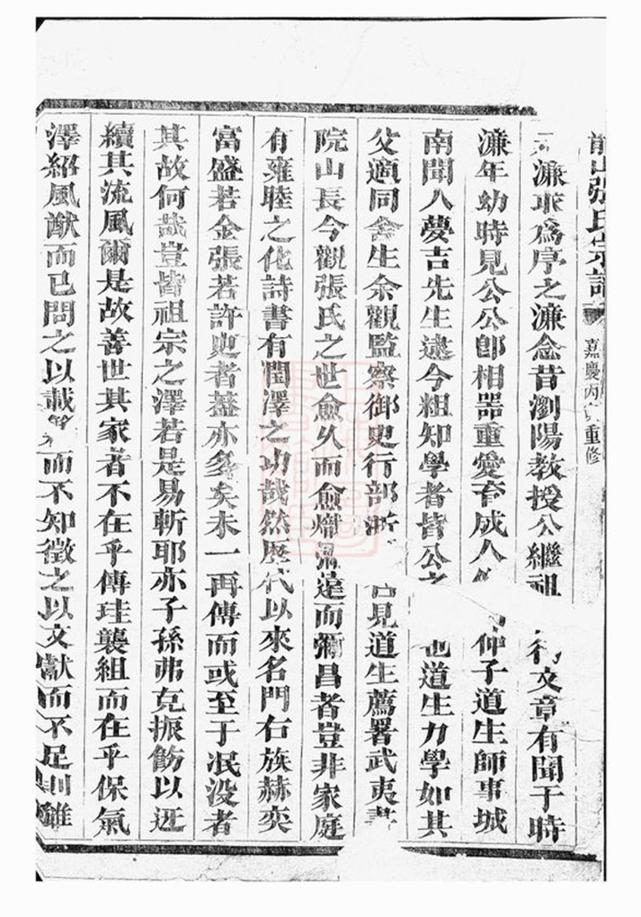 山張氏宗譜 嘉慶丙 重修
濂求為序之濂念昔瀏陽教授公繼祖 文章有聞于時
濂年幼時見公公卽相器重愛育成人 仲子道生師事城
南聞人夢吉先生逮今粗知學者皆公之 也道生力學如其
父適同舍生余觀監察御史行部浙 見道生薦署武夷書
院山長今觀張氏之世愈久而愈熾彌遠而彌昌者豈非家庭
有雍睦之化詩書有潤澤之功哉然歷代以來名門右族赫奕
富盛若金張若許史者蓋亦多矣未一再傳而或至于泯没者
其故何哉豈皆祖宗之澤若是易斬耶亦子孫弗克振飭以迓
續其流風爾是故善世其家者不在乎傳珪襲組而在乎保氣
澤紹風猷而已問之以載 而不知徵之以文獻而不足則雖